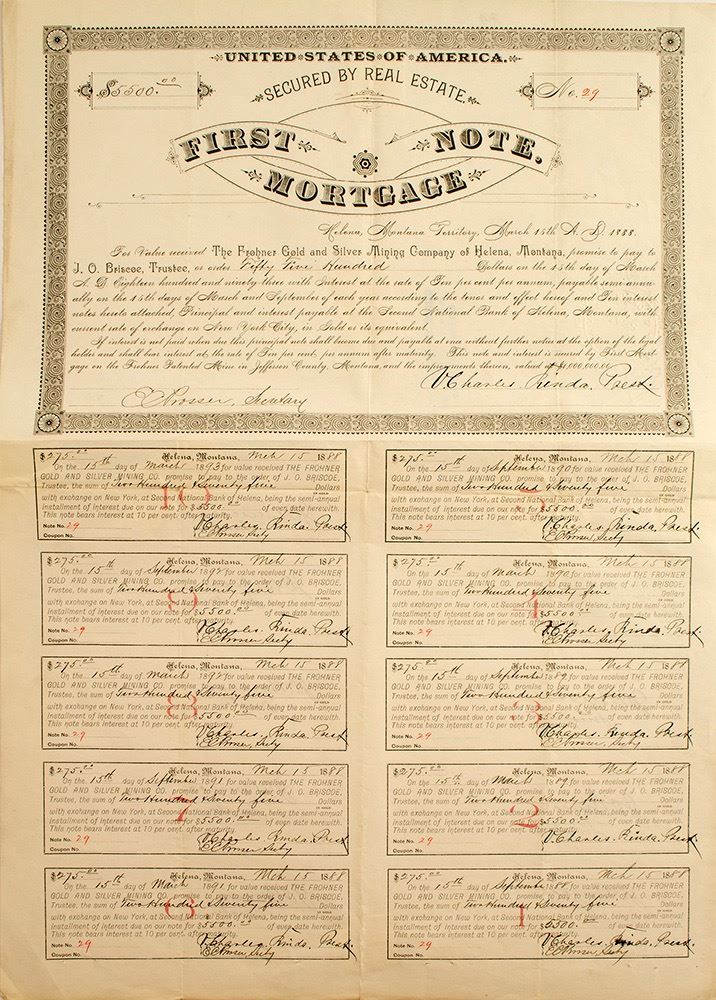 UNITED STATES OF AMERICA.
$5500.00
SECURED BY REAL ESTATE.
No. 29
FIRST NOTE.
MORTGAGE
Helena, Montana Territory, March 15th A. D. 1888.
For Value received The Frohner Gold and Silver Mining Company of Helena, Montana, promise to pay to
J. O. Briscoe, Trustee, or order Fifty Five Hundred Dollars on the 15th day of March
A. D. Eighteen hundred and ninety three with Interest at the rate of Ten per cent per annum, payable semi-annu-
ally on the 15th days of March and September of each year according to the tenor and effect hereof and Ten interest
notes hereto attached, Principal and interest payable at the Second National Bank of Helena, Montana, with
current rate of exchange on New York City, in Gold or its equivalent.
If interest is not paid when due this principal note shall become due and payable at once without further notice at the option of the legal
holder and shall bear interest at the rate of Ten per cent per annum after maturity. This note and interest is secured by First Mort-
gage on the Frohner Patented Mine in Jefferson County, Montana, and the improvements thereon, valued at $1,000,000.00
V. Charles. Rinda, Prest.
Secretary
$275.00 Helena, Montana, Mch 15 1888
On the 15th day of March 1893 for value received THE FROHNER
GOLD AND SILVER MINING CO. promise to pay to the order of J. O. BRISCOE,
Trustee, the sum of Two Hundred & Seventy five Dollars
IN GOLD
with exchange on New York, at Second National Bank of Helena, being the semi-annual
installment of interest due on our note for $5500.00 of even date herewith.
This note bears interest at 10 per cent. after maturity.
Note No. 29 V. Charles. Rinda, Prest
Coupon No. Secty
10
$275.00 Helena, Montana, Mch 15 1888
On the 15th day of September 1890 for value received THE FROHNER
GOLD AND SILVER MINING CO. promise to pay to the order of J. O. BRISCOE,
Trustee, the sum of Two Hundred & Seventy five Dollars
IN GOLD
with exchange on New York, at Second National Bank of Helena, being the semi-annual
installment of interest due on our note for $5500.00 of even date herewith.
This note bears interest at 10 per cent. after maturity.
Note No. 29 V. Charles. Rinda, Prest
Coupon No. Secty
5
$275.00 Helena, Montana, Mch 15 1888
On the 15th day of September 1892 for value received THE FROHNER
GOLD AND SILVER MINING CO. promise to pay to the order of J. O. BRISCOE,
Trustee, the sum of Two Hundred & Seventy five Dollars
IN GOLD
with exchange on New York, at Second National Bank of Helena, being the semi-annual
installment of interest due on our note for $5500.00 of even date herewith.
This note bears interest at 10 per cent. after maturity.
Note No. 29 V. Charles. Rinda, Prest
Coupon No. Secty
9
$275.00 Helena, Montana, Mch 15 1888
On the 15th day of March 1890 for value received THE FROHNER
GOLD AND SILVER MINING CO. promise to pay to the order of J. O. BRISCOE,
Trustee, the sum of Two Hundred & Seventy five Dollars
IN GOLD
with exchange on New York, at Second National Bank of Helena, being the semi-annual
installment of interest due on our note for $5500.00 of even date herewith.
This note bears interest at 10 per cent. after maturity.
Note No. 29 V. Charles. Rinda, Prest
Coupon No. Secty
4
$275.00 Helena, Montana, Mch 15 1888
On the 15th day of March 1892 for value received THE FROHNER
GOLD AND SILVER MINING CO. promise to pay to the order of J. O. BRISCOE,
Trustee, the sum of Two Hundred & Seventy five Dollars
IN GOLD
with exchange on New York, at Second National Bank of Helena, being the semi-annual
installment of interest due on our note for $5500.00 of even date herewith.
This note bears interest at 10 per cent. after maturity.
Note No. 29 V. Charles. Rinda, Prest
Coupon No. Secty
8
$275.00 Helena, Montana, Mch 15 1888
On the 15th day of September 1889 for value received THE FROHNER
GOLD AND SILVER MINING CO. promise to pay to the order of J. O. BRISCOE,
Trustee, the sum of Two Hundred & Seventy five Dollars
IN GOLD
with exchange on New York, at Second National Bank of Helena, being the semi-annual
installment of interest due on our note for $5500.00 of even date herewith.
This note bears interest at 10 per cent. after maturity.
Note No. 29 V. Charles. Rinda. Prest
Coupon No. Secty
3
$275.00 Helena, Montana, Mch 15 1888
On the 15th day of September 1891 for value received THE FROHNER
GOLD AND SILVER MINING CO. promise to pay to the order of J. O. BRISCOE,
Trustee, the sum of Two Hundred & Seventy five Dollars
IN GOLD
with exchange on New York, at Second National Bank of Helena, being the semi-annual
installment of interest due on our note for $5500.00 of even date herewith.
This note bears interest at 10 per cent. after maturity.
Note No. 29 V. Charles. Rinda, Prest
Coupon No. Secty
7
$275.00 Helena, Montana, Mch 15 1888
On the 15th day of March 1889 for value received THE FROHNER
GOLD AND SILVER MINING CO. promise to pay to the order of J. O. BRISCOE,
Trustee, the sum of Two Hundred & Seventy five Dollars
IN GOLD
with exchange on New York, at Second National Bank of Helena, being the semi-annual
installment of interest due on our note for $5500.00 of even date herewith.
This note bears interest at 10 per cent. after maturity.
Note No. 29 V. Charles. Rinda, Prest
Coupon No. Secty
2
$275.00 Helena, Montana, Mch 15 1888
On the 15th day of March 1891 for value received THE FROHNER
GOLD AND SILVER MINING CO. promise to pay to the order of J. O. BRISCOE,
Trustee, the sum of Two Hundred & Seventy five Dollars
IN GOLD
with exchange on New York, at Second National Bank of Helena, being the semi-annual
installment of interest due on our note for $5500.00 of even date herewith.
This note bears interest at 10 per cent. after maturity.
Note No. 29 V. Charles. Rinda, Prest
Coupon No. Secty
6
$275.00 Helena, Montana, Mch 15 1888
On the 15th day of September 1888 for value received THE FROHNER
GOLD AND SILVER MINING CO. promise to pay to the order of J. O. BRISCOE,
Trustee, the sum of Two Hundred & Seventy five Dollars
IN GOLD
with exchange on New York, at Second National Bank of Helena, being the semi-annual
installment of interest due on our note for $5500.00 of even date herewith.
This note bears interest at 10 per cent. after maturity.
Note No. 29 V. Charles. Rinda, Prest
Coupon No. Secty
1